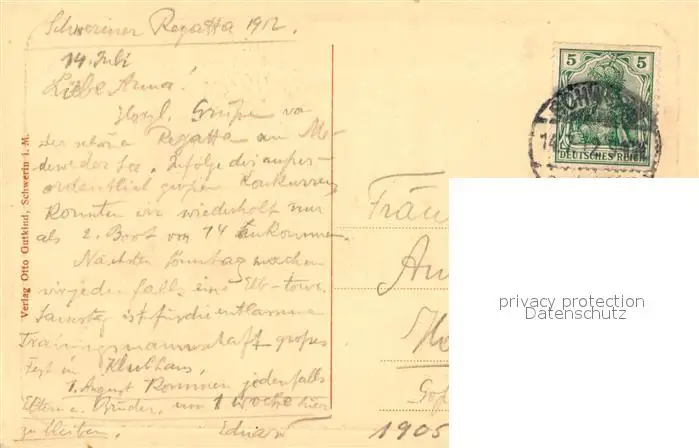 Schweriner Regatta 1912.
14. Juli
Liebe Anna!
Herzl. Grüße von
der schönen Regatta am Me-
deweder See. Infolge der außer-
ordentlich großen Konkurrenz
konnten wir wiederholt nur
als 2. Boot von 14 ankommen.
Nächsten Sonntag machen
wir jedenfalls eine Elb-tour.
Samstag ist für die entlassene
Trainingsmannschaft großes
Fest im Klubhaus.
1. August kommen jedenfalls
Eltern u. Bruder, um 1 Woche hier
zu bleiben.
Eduard
Verlag Otto Gutkind, Schwerin i. M.
5 5
DEUTSCHES REICH
SCHW
14
Fräu
An
1905
privacy protection
Datenschutz